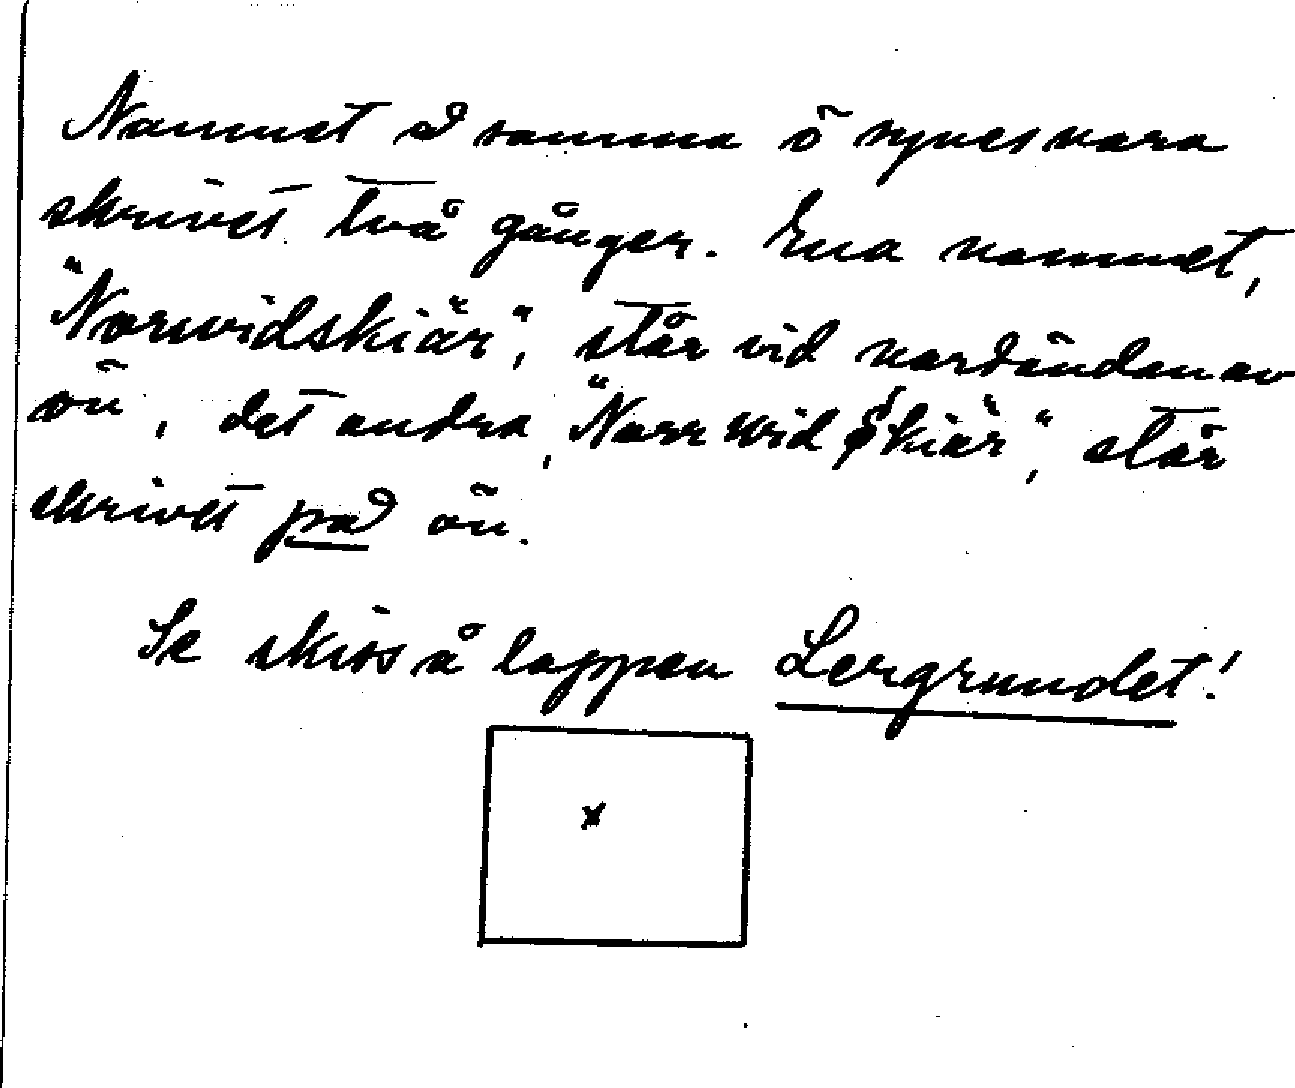 Namnet å samma ö synes vara
skrivet två gånger. Ena namnet,
"Norwidskiär", står vid nordändan av
ön, det andra, "Norr wid skiär", står
skrivet på ön.
Se skiss å lappen Lergrundet!
x